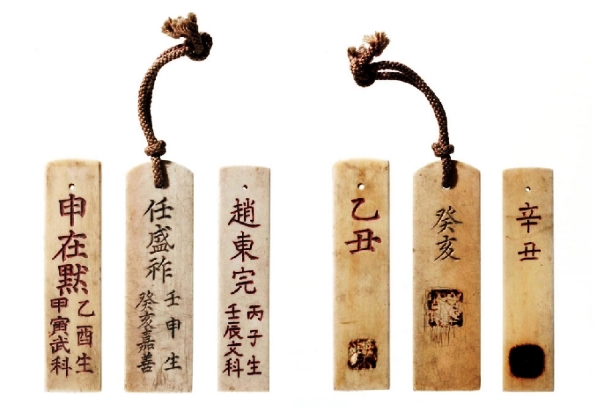 申在默
乙酉生
甲寅武科
任盛祚
壬申生
癸亥嘉善
趙東完
丙子生
壬辰文科
乙丑
癸亥
辛丑